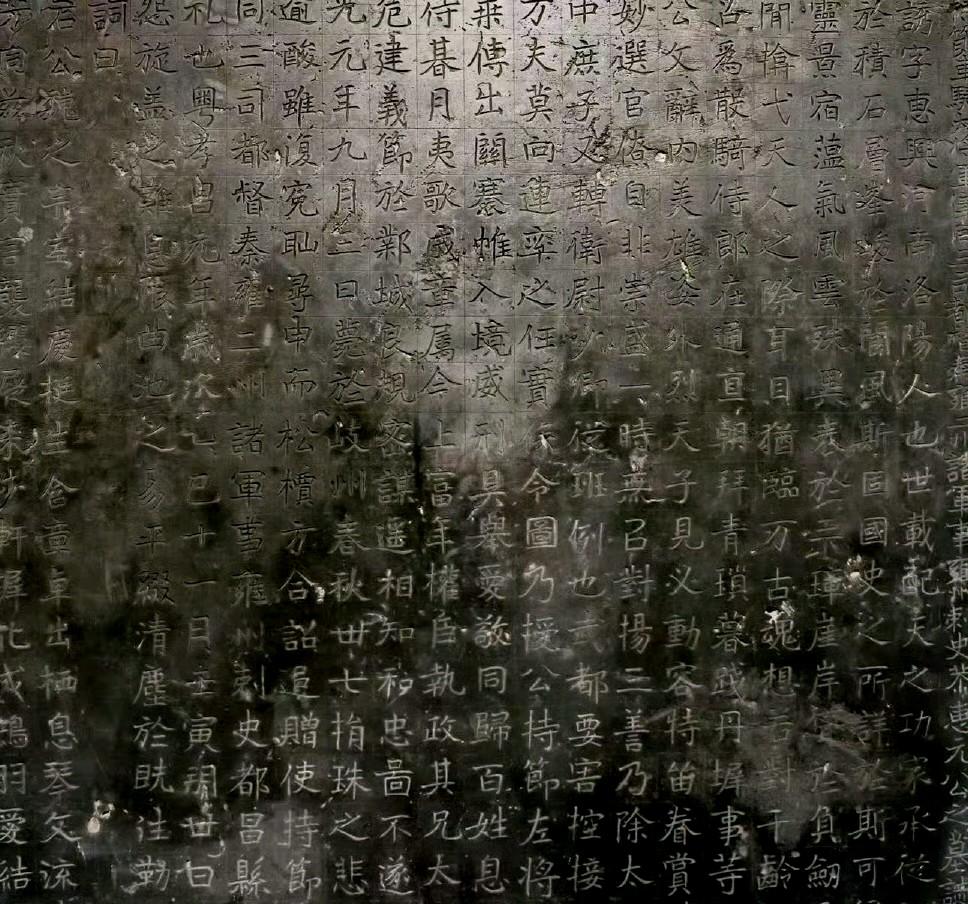 諸軍事刺史恭惠元公之墓誌
誘字惠興河南洛陽人也世載配天之功家承從
於積石層峯峻於閬風斯固國史之所詳於斯可
靈景宿薀氣風雲殊異表於崖岸於負劒
閒愴弋天人之際耳目猶臨万古魂想言對千齡
召爲散騎侍郎在通直朝拜青瑣暮趍丹墀事等
公文辭內美雄姿外烈天子見之動容特留眷賞
妙選官僚自非崇盛一時無召對揚三善乃除太
中庶子又轉衛尉少卿從班例也武都要害控接
方夫莫向連率之任寶令圖乃授公持節左將
乘傳出關褰帷入境威刑具舉愛敬同歸百姓息
侍朞月夷歌童屬今上富年權臣執政其兄太
危建義節於鄴城良規密謀遥相知和忠圖不遂
光元年九月三日薨於岐州春秋卅七捐珠之悲
逾酸雖復冤恥尋申而松檟方合詔追贈使持節
同三司都督秦雍二州諸軍事雍州刺史都昌縣
礼也粤孝昌元年歲次乙巳十一月壬寅朔廿日
怨旋蓋之難息曲池之易平綴清塵於晀勒
詞曰
公誕之結慶挺生含章卓出栖息琴文流